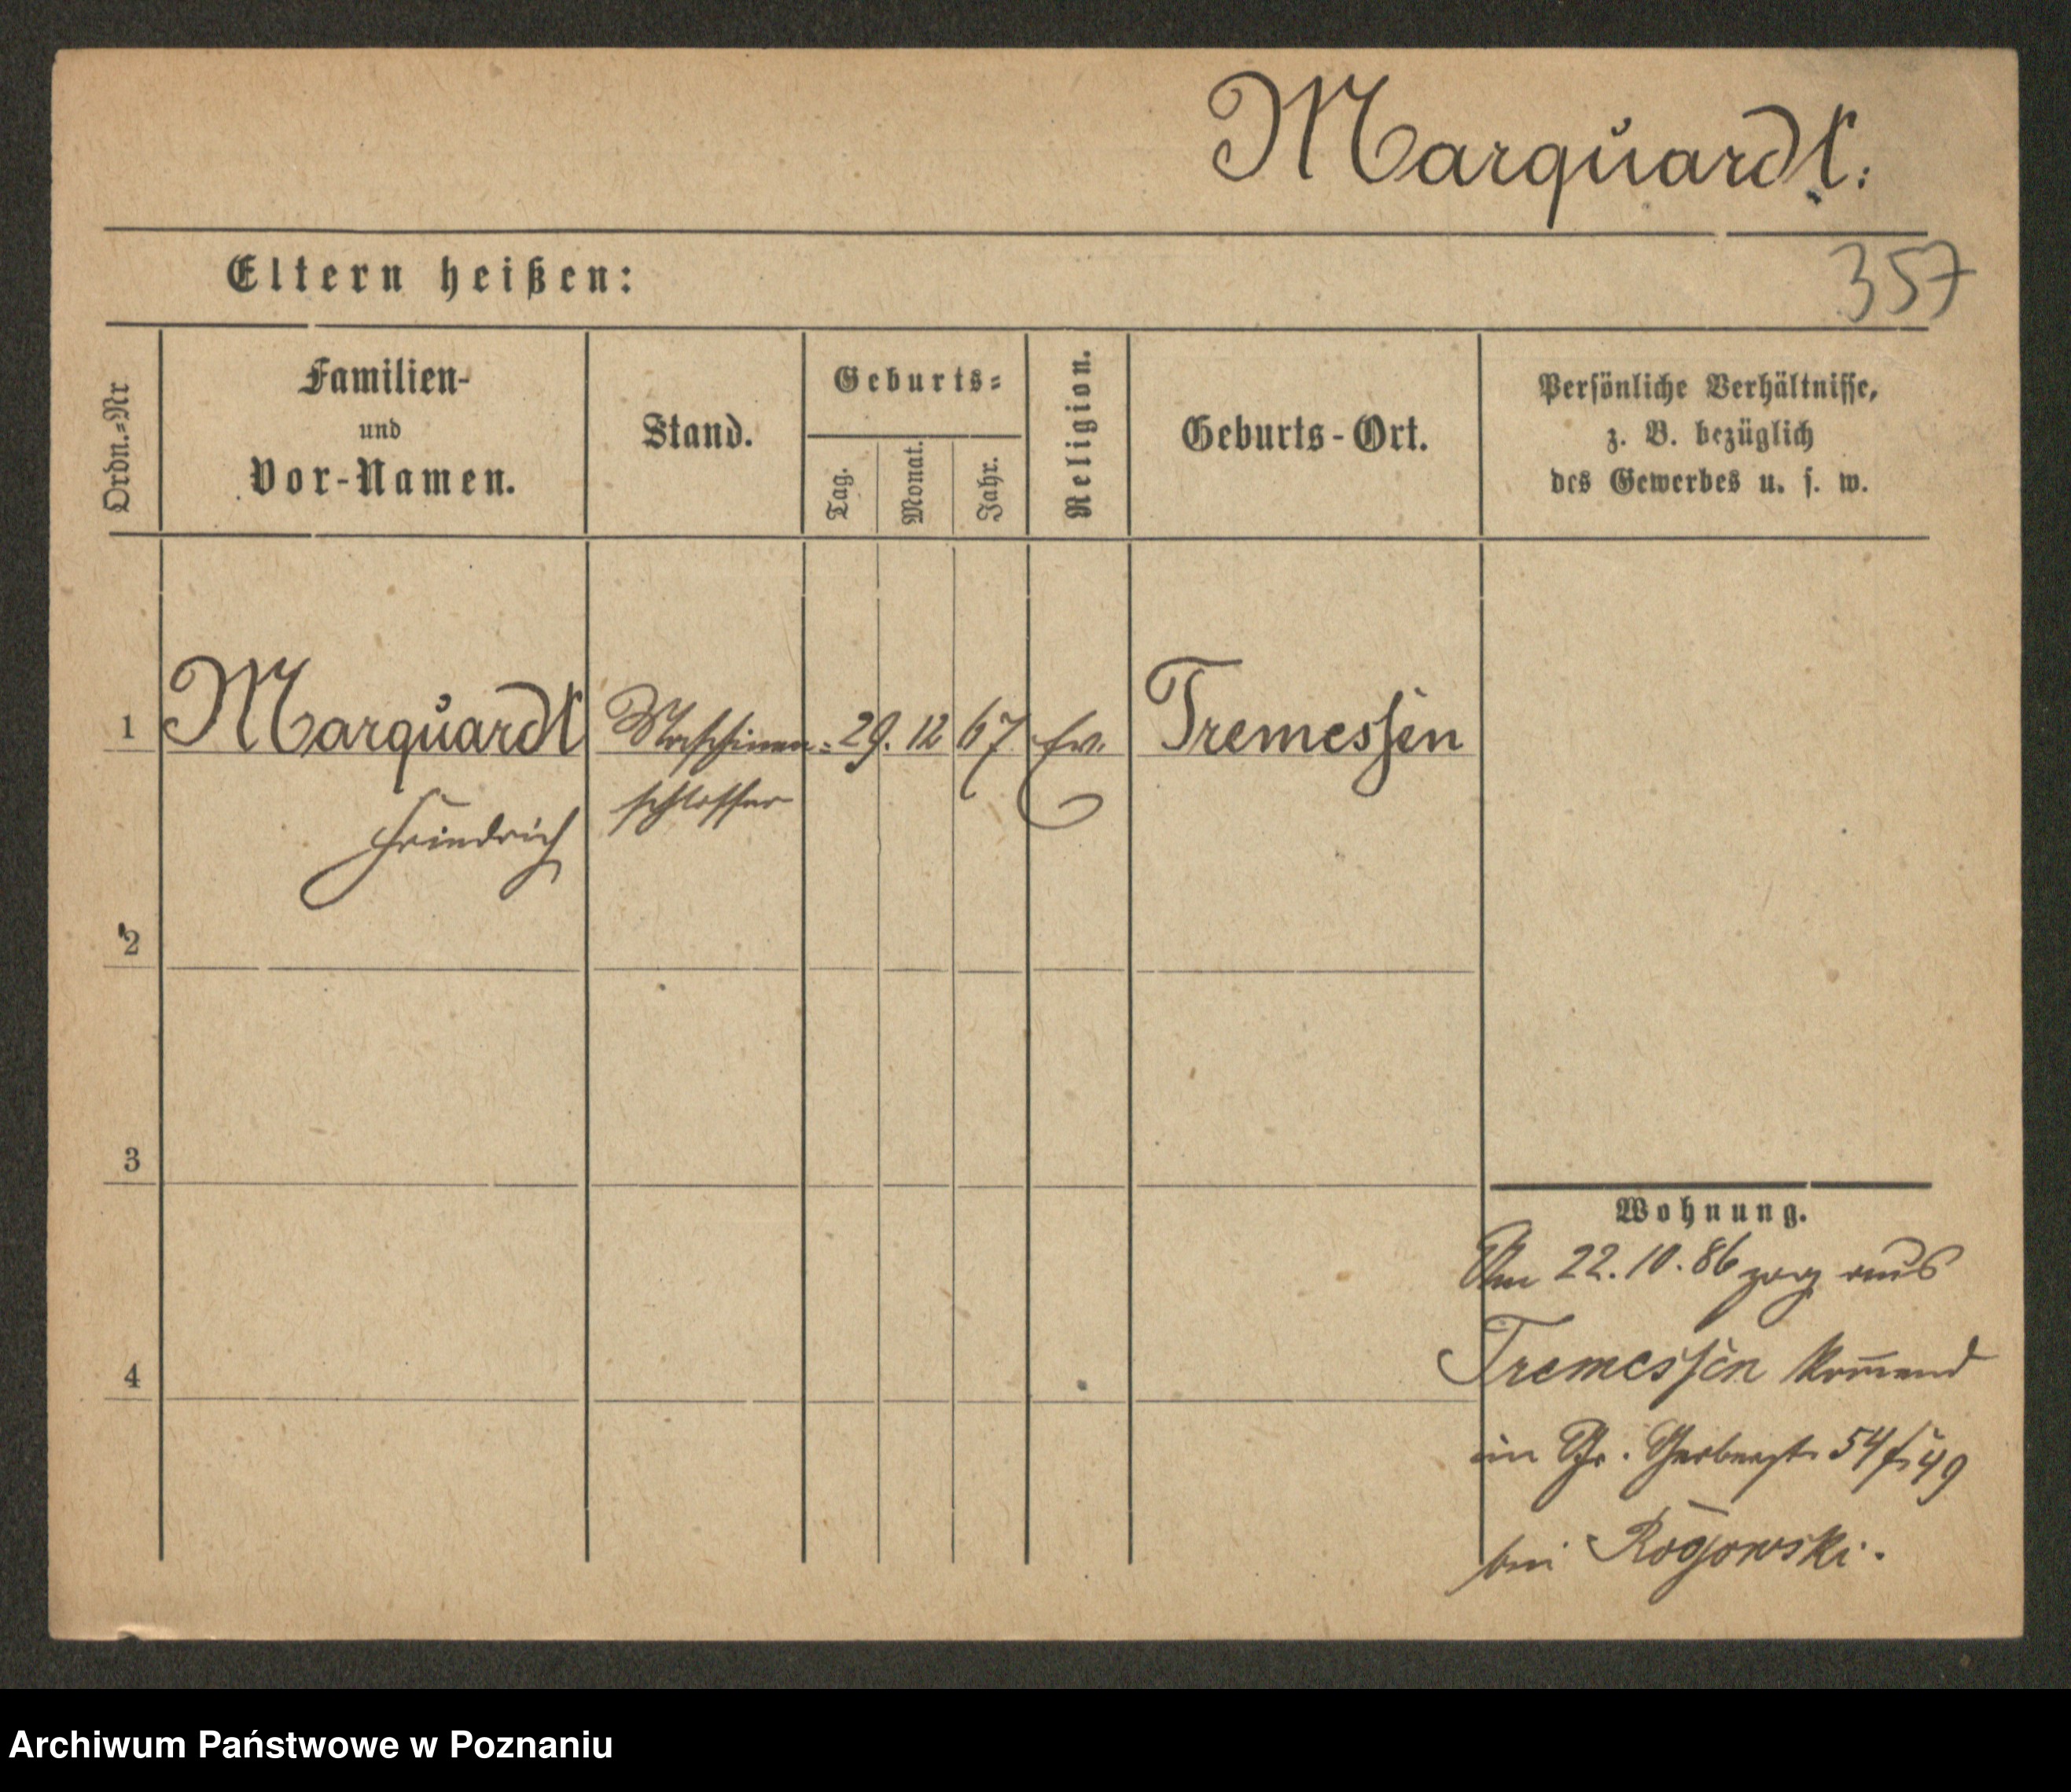 Marquardt.
Eltern heißen:
357
Ordn.=Nr
Familien-
und
Vor-Namen.
Stand.
Geburts=
Tag.
Monat.
Jahr.
Religion.
Geburts-Ort.
Persönliche Verhältnisse,
z. B. bezüglich
des Gewerbes u. s. w.
1 Marquardt Maschinen= 29. 12 67 Ev. Tremessen
Friedrich schlosser
2
3
4
Wohnung.
Am 22.10.86 zog aus
Tremessen kom̄end
in Gr. Gerberst. 54
bei Rogowski.
Archiwum Państwowe w Poznaniu